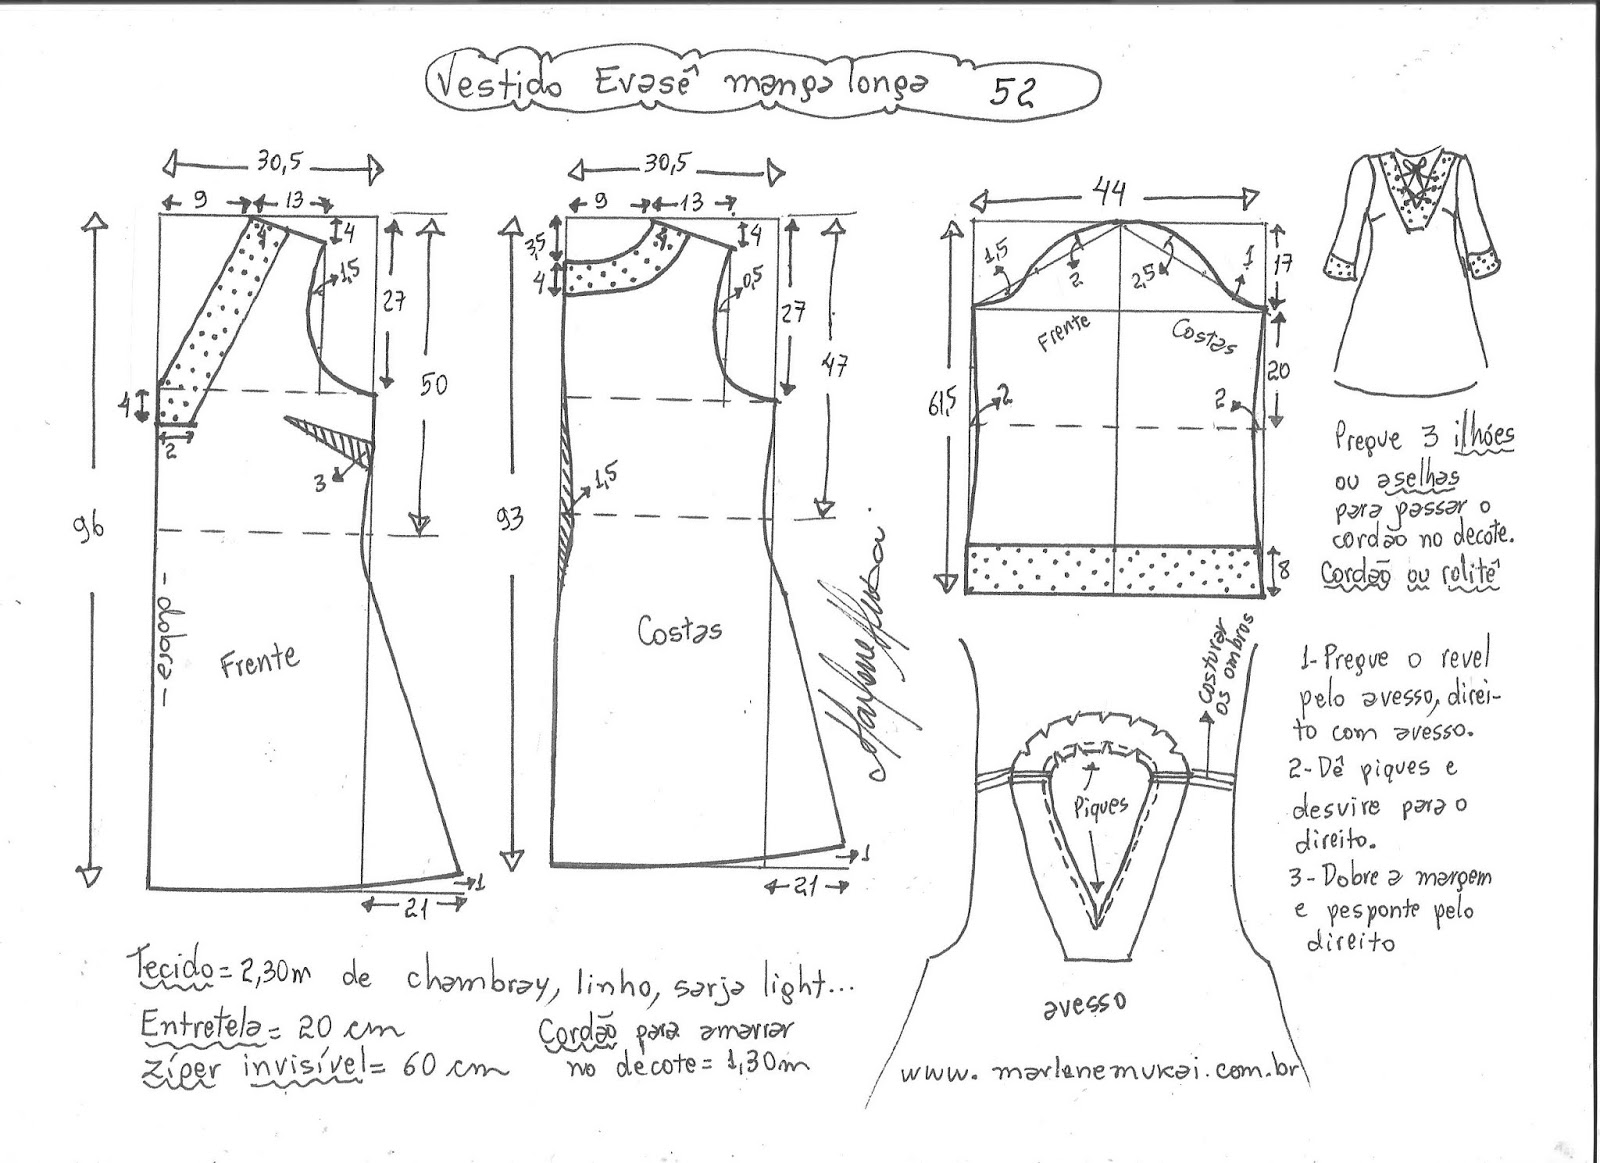 Vestido Evasê manga longa 52
30,5
9 13
4
4
1,5
27
50
4
2
3
96
- dobra -
Frente
1
21
30,5
9 13
3,5
4
4
4
0,5
27
47
1,5
93
Costas
1
21
Marlene Mukai.
44
1,5
2
2,5
1
17
Frente
Costas
20
61,5
2
2
8
Pregue 3 ilhóes
ou aselhas
para passar o
cordão no decote.
Cordão ou rolitê
Costurar
os ombros
Piques
avesso
1-Pregue o revel
pelo avesso, direi-
to com avesso.
2-Dê piques e
desvire para o
direito.
3-Dobre a margem
e pesponte pelo
direito
Tecido = 2,30m de chambray, linho, sarja light...
Entretela = 20 cm
zíper invisível = 60 cm
Cordão para amarrar
no decote = 1,30m
www.marlenemukai.com.br